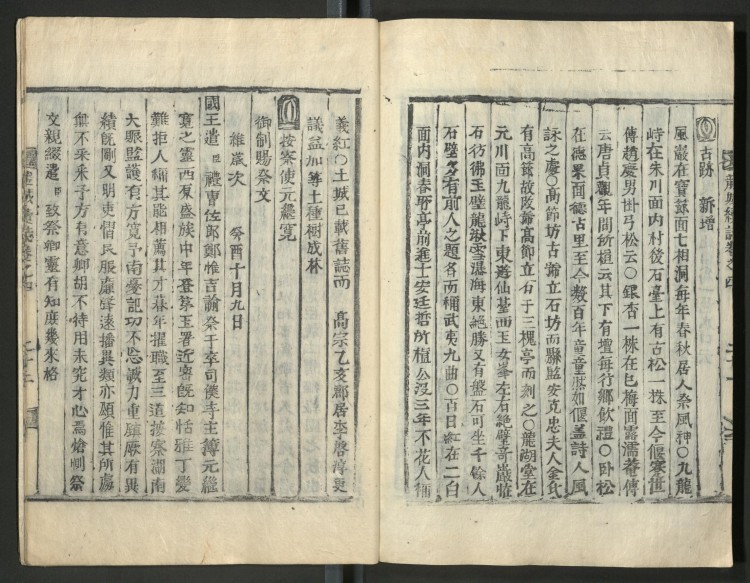 古跡 新增
風巖在寶蘇面七相洞每年春秋居人祭風神○九龍
峙在朱川面內村後石臺上有古松一株至今偃蹇世
傳趙慶男掛弓松云○銀杏一株在巳梅面露濡菴傳
云唐貞觀年間所植云其下有壇每行鄉飮禮○臥松
在德果面德古里至今數百年童童然如偃盖詩人風
詠之處○高節坊古節立石坊而縣監安克忠夫人金氏
有高節故敀爺高節立石于三槐亭而刻之○龍湖堂在
元川面九龍峙下東遊仙基面玉女峯左右絕壁奇巖臨
石彷彿玉壁龍湫雪瀑海東絕勝又有盤石可坐千餘人
石壁多有前人之題各而稱武夷九曲○百日紅在二白
面內洞春睡亭前進士安廷哲所植公沒三年不花人稱
義紅○土城已載舊誌而 高宗乙亥郡居李啓淳更
議益加等土種樹成林
按察使元繼寬
御制賜祭文
維歲次 癸酉十月九日
國王遣臣禮曹佐郎鄭惟吉諭祭于卒司僕寺主簿元繼
寬之靈西原盛族中年登第玉署近密旣知恬雅丁變
難拒人稱其能相薦其才暮年擢職至三道按察湖南
大賑監護有方寬予南憂記功不忘誠力重難厥有異
績旣剛又明吏慴民服廉聲遠播異類亦願惟其所處
無不乘來予方有意卿胡不待用未究才心焉焰惻祭
文親綴遣臣致祭卿靈有知庶幾來格